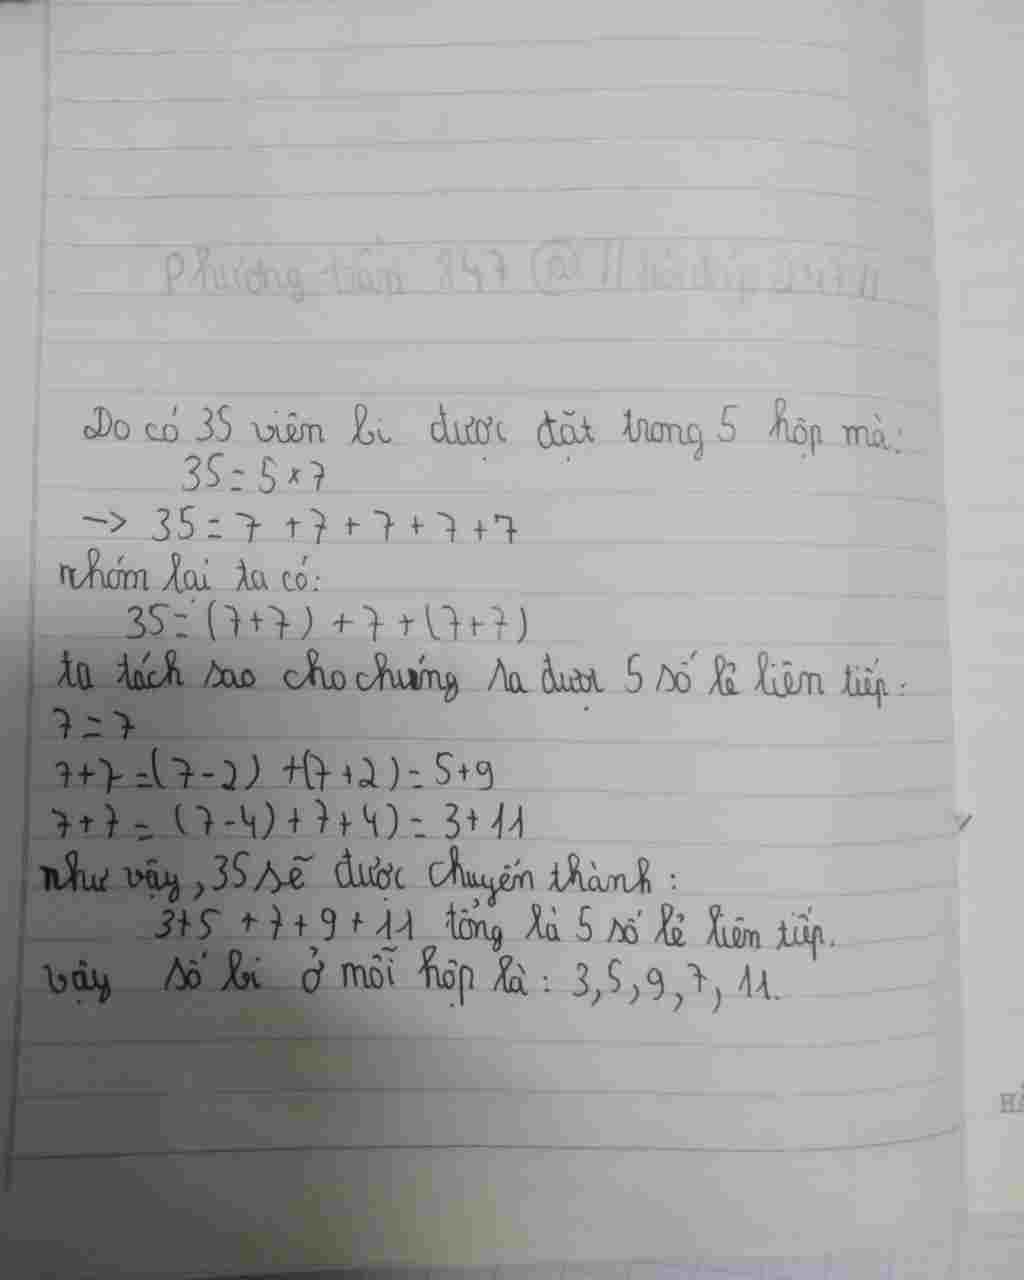 Phương trần 847 @ || hỏi đáp 247 ||
Do có 35 viên bi được đặt trong 5 hộp mà:
35 = 5 × 7
-> 35 = 7 + 7 + 7 + 7 + 7
nhóm lai ta có:
35 = (7+7) + 7 + (7+7)
ta tách sao cho chúng ra được 5 số lẻ liên tiếp:
7 = 7
7+7 = (7-2) +(7+2) = 5+9
7+7 = (7-4)+7+4) = 3+11
như vậy, 35 sẽ được chuyển thành:
3+5 + 7 + 9 + 11 tổng là 5 số lẻ liên tiếp.
vậy số bi ở mỗi hộp là: 3, 5, 9, 7, 11.
HÃ